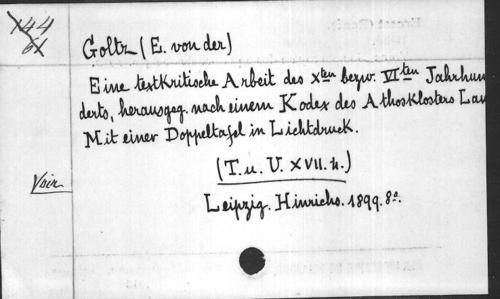 144
61
Goltz (E. von der)
Eine textkritische Arbeit des Xten bezw. VIten Jahrhun
derts, herausgeg. nach einem Kodex des Athosklosters Lau
Mit einer Doppeltafel in Lichtdruck.
(T. u. U. XVII. 4.)
Voir
Leipzig. Hinrichs. 1899. 8º.